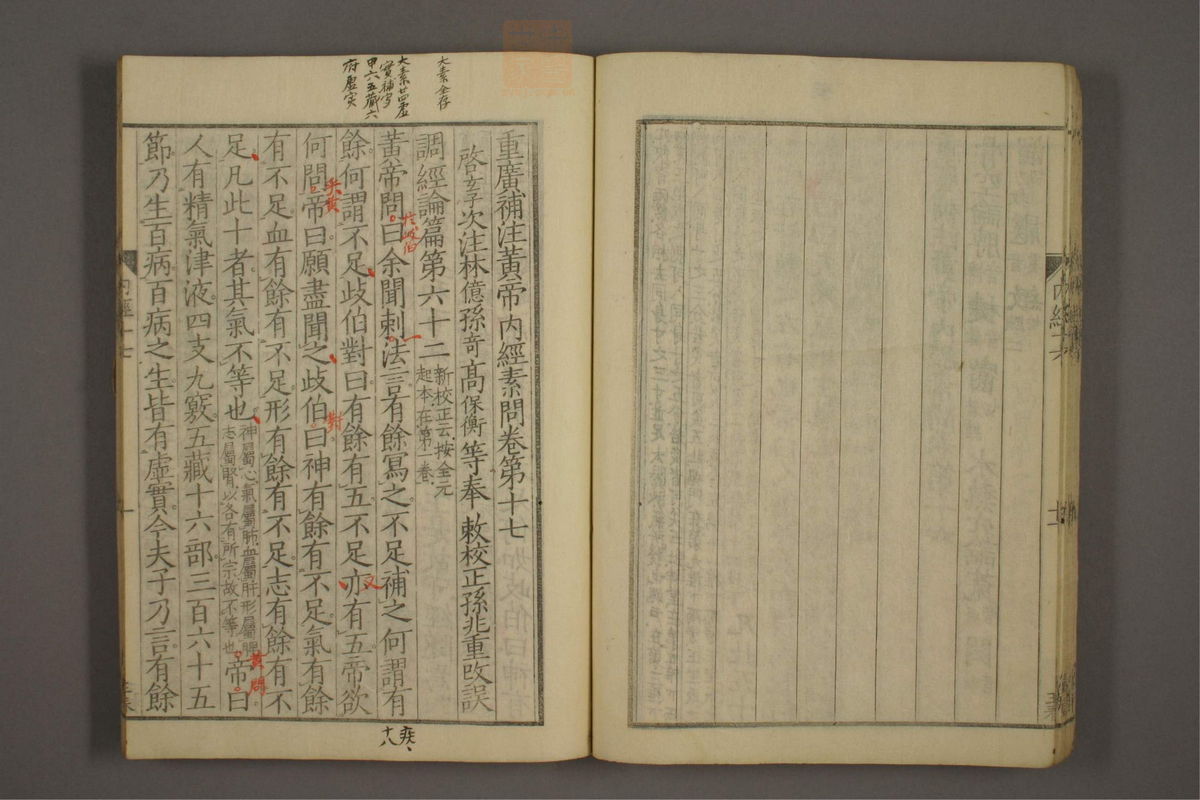 內經十六
重廣補注黃帝內經素問卷第十七
啓玄子次注林億孫奇高保衡等奉敕校正孫兆重改誤
調經論篇第六十二
新校正云按全元
起本在第一卷
黃帝問曰余聞刺法言有餘寫之不足補之何謂有
餘何謂不足歧伯對曰有餘有五不足亦有五帝欲
何問帝曰願盡聞之歧伯曰神有餘有不足氣有餘
有不足血有餘有不足形有餘有不足志有餘有不
足凡此十者其氣不等也
神屬心氣屬肺血屬肝形屬脾
志屬腎以各有所宗故不等也
帝曰
人有精氣津液四支九竅五藏十六部三百六十五
節乃生百病百病之生皆有虛實今夫子乃言有餘
內經十七
一
大素全存
大素廿四虛
實補寫
甲六五藏六
府虛实
於岐伯
乎黃
對
又
黃問
疾
十八